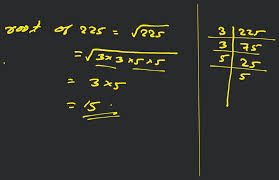 root of 225 = √225
= √3×3×5×5
= 3×5
= 15
3 | 225
3 | 75
5 | 25
| 5